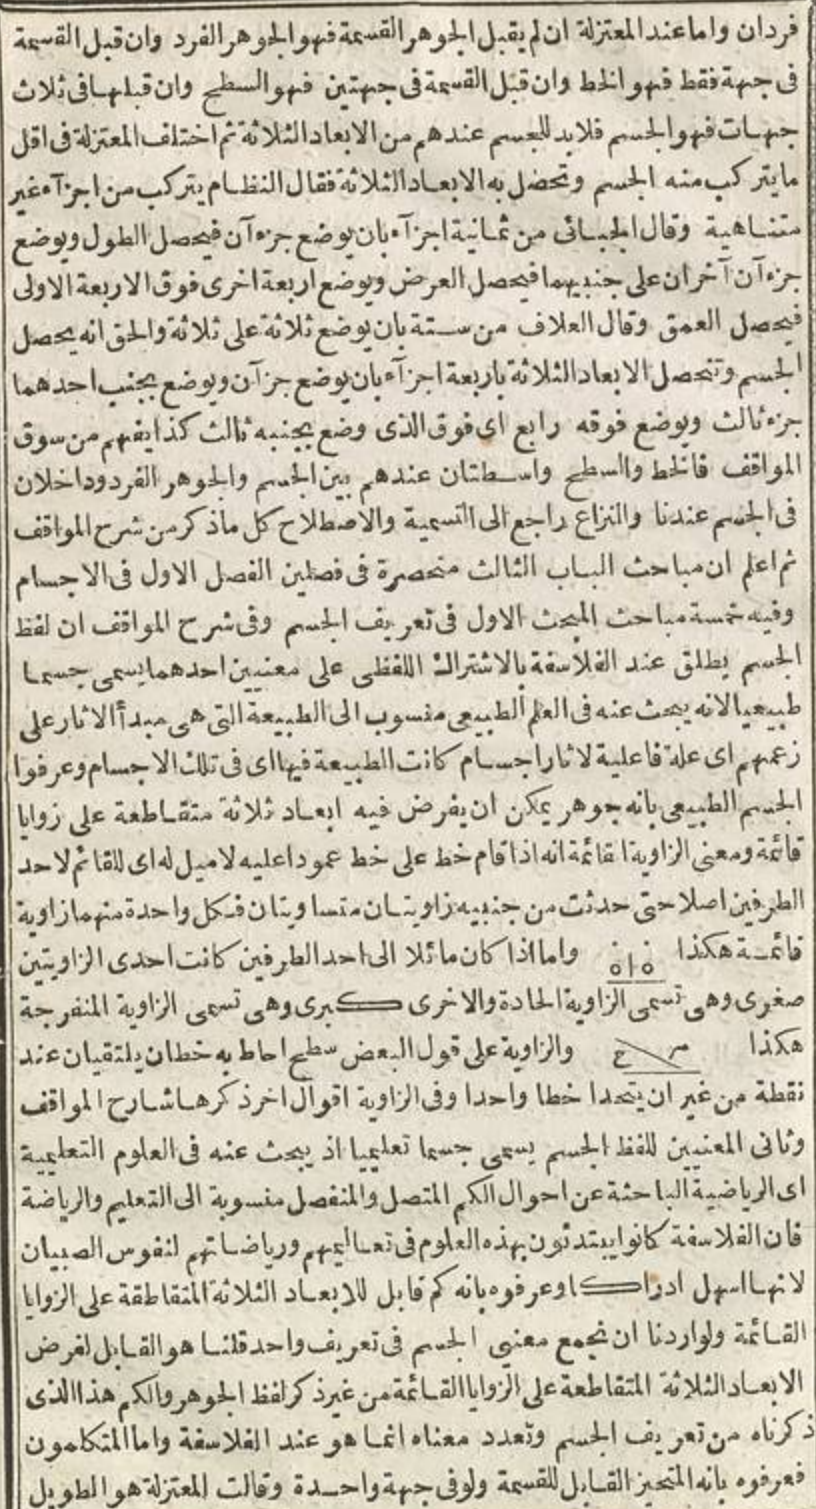 فردان واما عند المعتزلة ان لم يقبل الجوهر القسمة فهو الجوهر الفرد وان قبل القسمة
فى جهة فقط فهو الخط وان قبل القسمة فى جهتين فهو السطح وان قبلها فى ثلاث
جهات فهو الجسم فلابد للجسم عندهم من الابعاد الثلاثة ثم اختلف المعتزلة فى اقل
ما يتركب منه الجسم وتحصل به الابعاد الثلاثة فقال النظام يتركب من اجزآء غير
متناهية وقال الجبائى من ثمانية اجزآء بان يوضع جزءآن فيحصل الطول ويوضع
جزءآن آخران على جنبيهما فيحصل العرض ويوضع اربعة اخرى فوق الاربعة الاولى
فيحصل العمق وقال العلاف من ستة بان يوضع ثلاثة على ثلاثة والحق انه يحصل
الجسم وتتحصل الابعاد الثلاثة باربعة اجزآء بان يوضع جزآن ويوضع بجنب احدهما
جزء ثالث ويوضع فوقه رابع اى فوق الذى وضع بجنبه ثالث كذا يفهم من سوق
المواقف فالخط والسطح واسطتان عندهم بين الجسم والجوهر الفرد وداخلان
فى الجسم عندنا والنزاع راجع الى التسمية والاصطلاح كل ما ذكر من شرح المواقف
ثم اعلم ان مباحث الباب الثالث منحصرة فى فصلين الفصل الاول فى الاجسام
وفيه خمسة مباحث المبحث الاول فى تعريف الجسم وفى شرح المواقف ان لفظ
الجسم يطلق عند الفلاسفة بالاشتراك اللفظى على معنيين احدهما يسمى جسما
طبيعيا لانه يبحث عنه فى العلم الطبيعى منسوب الى الطبيعة التى هى مبدأ الاثار على
زعمهم اى علة فاعلية لاثار اجسام كانت الطبيعة فيها اى فى تلك الاجسام وعرفوا
الجسم الطبيعى بانه جوهر يمكن ان يفرض فيه ابعاد ثلاثة متقاطعة على زوايا
قائمة ومعنى الزاوية القائمة انه اذا قام خط على خط عمودا عليه لا ميل له اى للقائم لاحد
الطرفين اصلا حتى حدثت من جنبيه زاويتان متساويتان فكل واحدة منهما زاوية
قائمة هكذا واما اذا كان مائلا الى احد الطرفين كانت احدى الزاويتين
صغرى وهى تسمى الزاوية الحادة والاخرى كبرى وهى تسمى الزاوية المنفرجة
هكذا والزاوية على قول البعض سطح احاط به خطان يلتقيان عند
نقطة من غير ان يتحدا خطا واحدا وفى الزاوية اقوال اخر ذكرها شارح المواقف
وثانى المعنيين للفظ الجسم يسمى جسما تعليميا اذ يبحث عنه فى العلوم التعليمية
اى الرياضية الباحثة عن احوال الكم المتصل والمنفصل منسوبة الى التعليم والرياضة
فان الفلاسفة كانوا يبتدئون بهذه العلوم فى تعاليمهم ورياضاتهم لنفوس الصبيان
لانها اسهل ادراكا وعرفوه بانه كم قابل للابعاد الثلاثة المتقاطقة على الزوايا
القائمة ولو اردنا ان نجمع معنيى الجسم فى تعريف واحد قلنا هو القابل لفرض
الابعاد الثلاثة المتقاطعة على الزوايا القائمة من غير ذكر لفظ الجوهر والكم هذا الذى
ذكرناه من تعريف الجسم وتعدد معناه انما هو عند الفلاسفة واما المتكلمون
فعرفوه بانه المتحيز القابل للقسمة ولو فى جهة واحدة وقالت المعتزلة هو الطويل